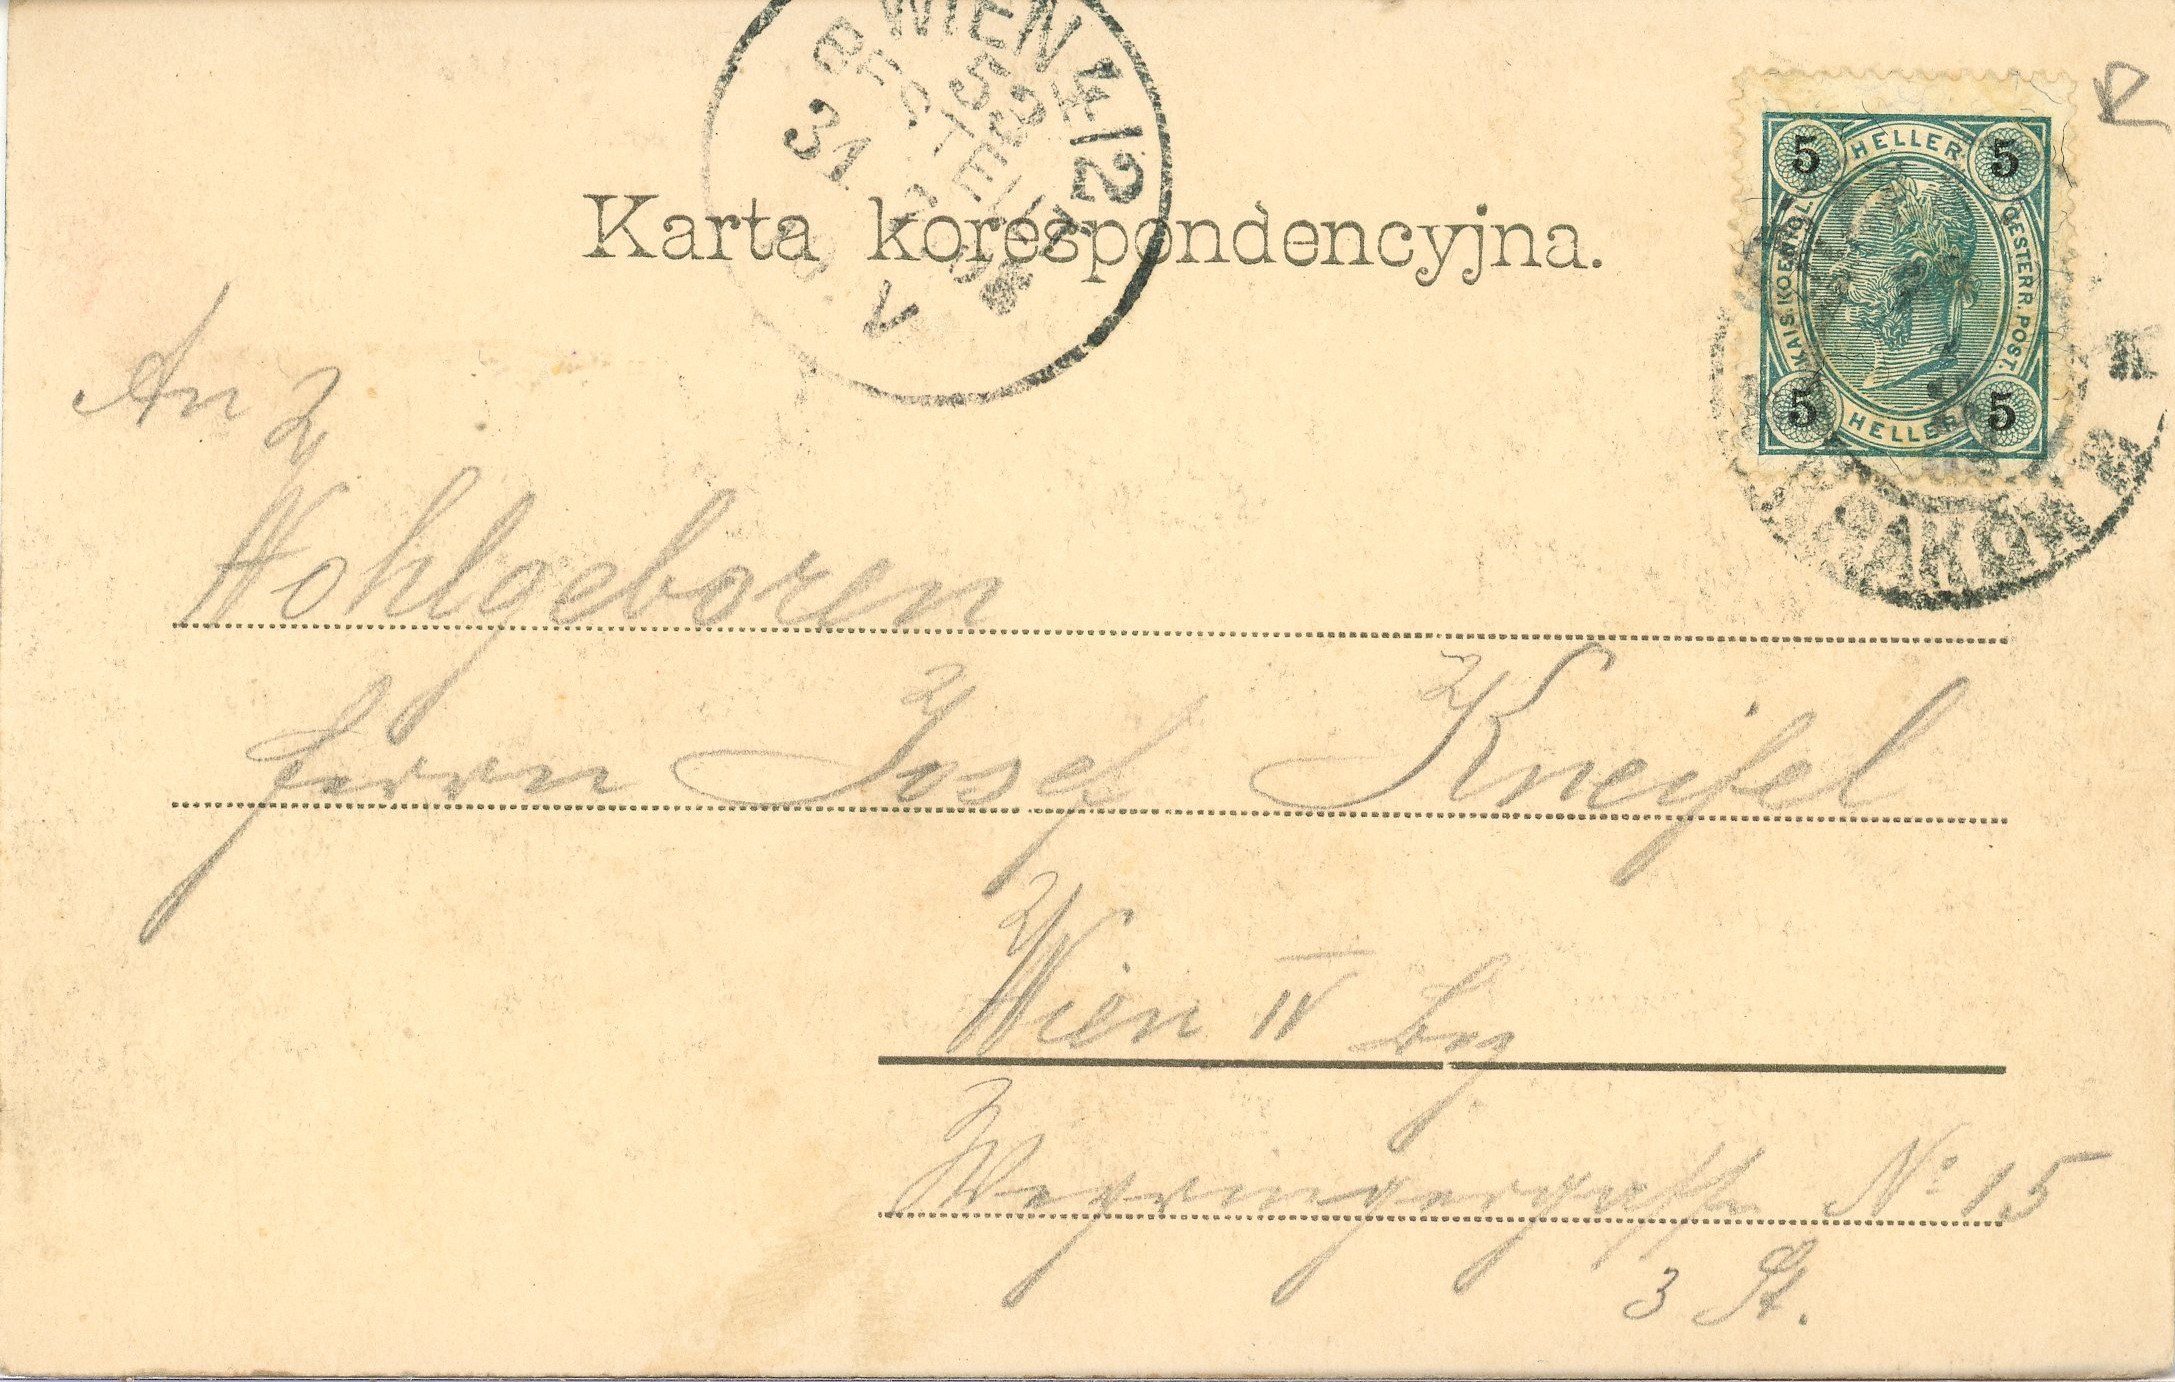 WIEN 4/2
BESTELLT
31
V
Karta korespondencyjna.
5 HELLER 5
KAIS. KOENIGL.
OESTERR. POST.
5 HELLER 5
KRAKÓW
An
Wohlgeboren
Herrn Josef Kneifel
Wien IV Bez
Weyringergasse No 15
3 St.